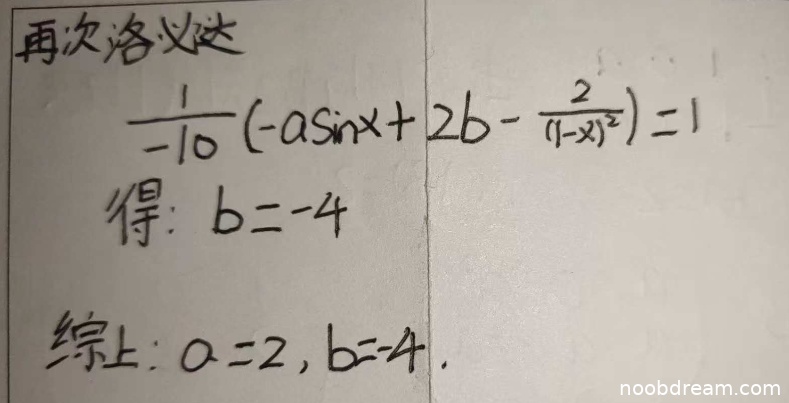 再次洛必达
1/-10 (-asinx + 2b - 2/(1-x)²) = 1
得: b = -4
综上: a = 2, b = -4.
noobdream.com